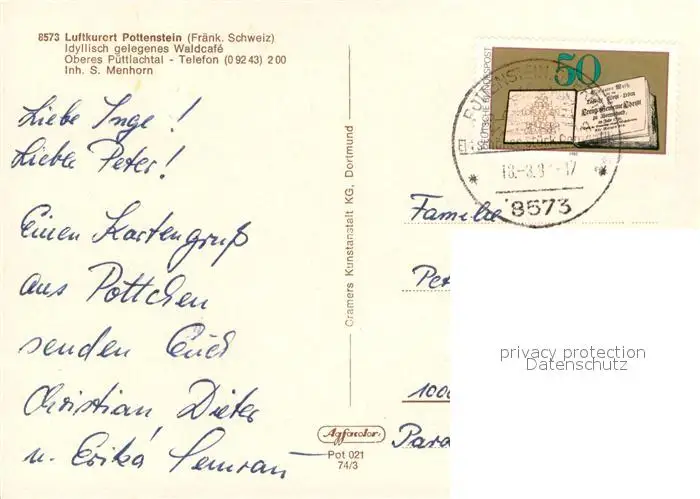 8573 Luftkurort Pottenstein (Fränk. Schweiz)
Idyllisch gelegenes Waldcafé
Oberes Püttlachtal - Telefon (0 92 43) 2 00
Inh. S. Menhorn
Liebe Inge!
Lieber Peter!
Einen Kartengruß
aus Pottchen
senden Euch
Christian, Dieter
u. Erika
Cramers Kunstanstalt KG, Dortmund
Agfacolor
Pot 021
74/3
DEUTSCHE BUNDESPOST
50
POTTENSTEIN
8573
Familie
Pet
1000
Para
privacy protection
Datenschutz